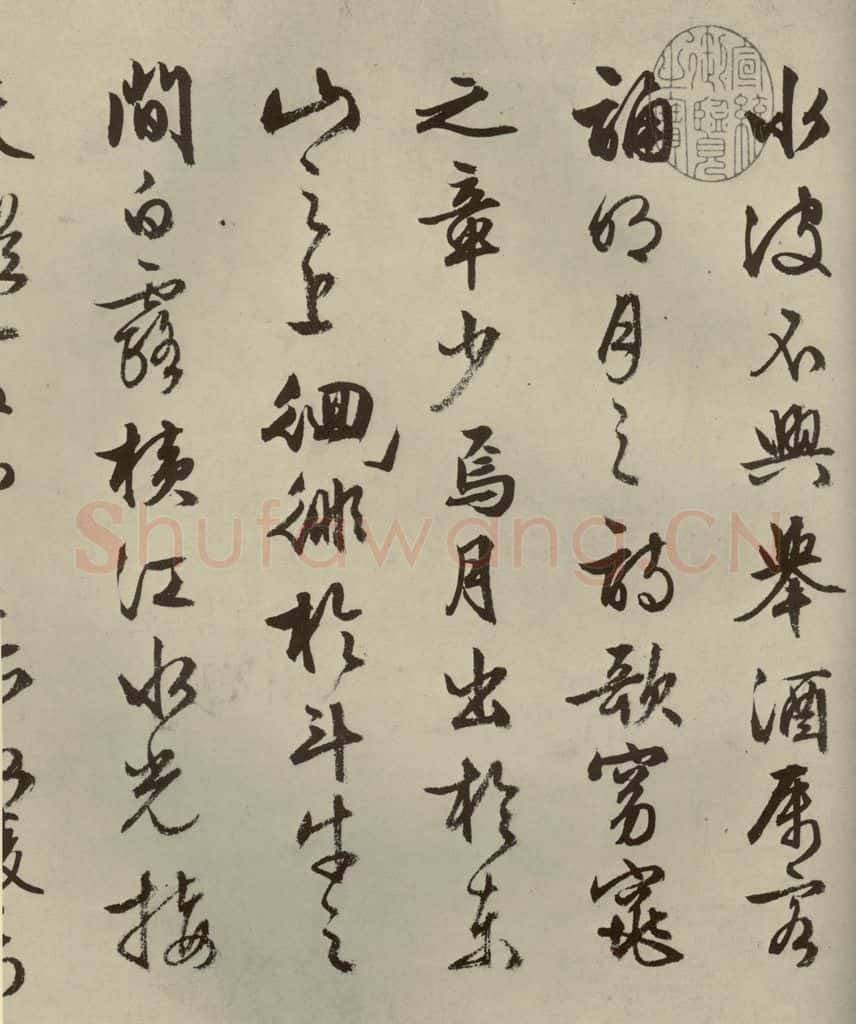 水波不興舉酒屬客
誦明月之詩歌窈窕
之章少焉月出於東
山之上徊徘於斗牛之
間白露橫江水光接
宣統御覽之寶
Shufawang.CN